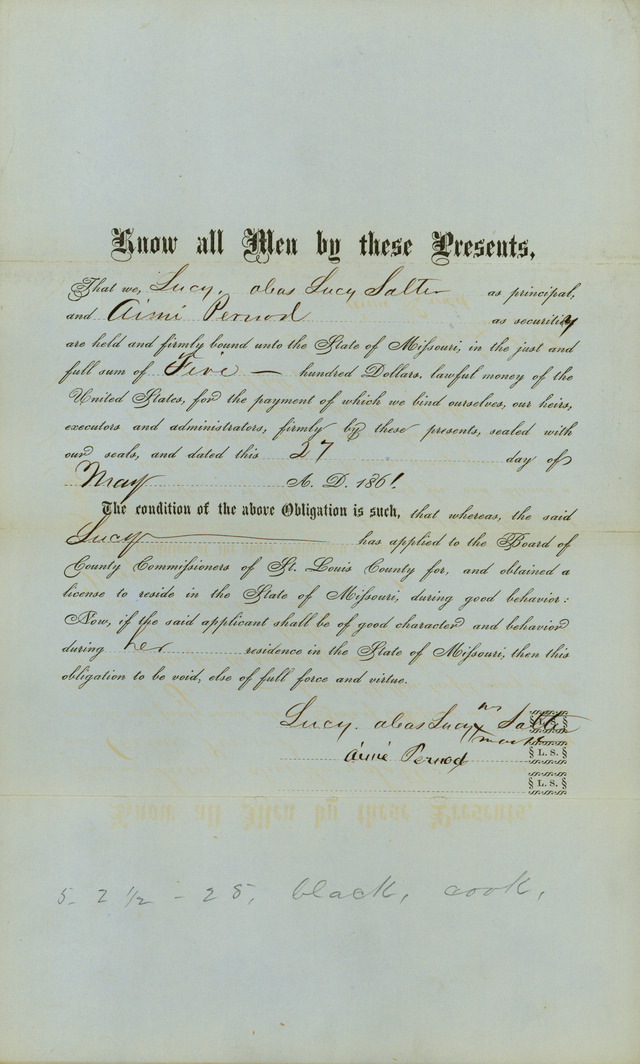 Know all Men by these Presents,
That we, Lucy, alias Lucy Salter as principal,
and Aimi Pernod as security
are held and firmly bound unto the State of Missouri, in the just and
full sum of Five — hundred Dollars, lawful money of the
United States, for the payment of which we bind ourselves, our heirs,
executors and administrators, firmly by these presents, sealed with
our seals, and dated this 27 day of
May A. D. 1861.
The condition of the above Obligation is such, that whereas, the said
Lucy has applied to the Board of
County Commissioners of St. Louis County for, and obtained a
license to reside in the State of Missouri, during good behavior:
Now, if the said applicant shall be of good character and behavior
during her residence in the State of Missouri, then this
obligation to be void, else of full force and virtue.
Lucy. alias Lucy x Salter
mark
Aimé Pernod L. S.
L. S.
5. 2 1/2 - 28, black, cook,